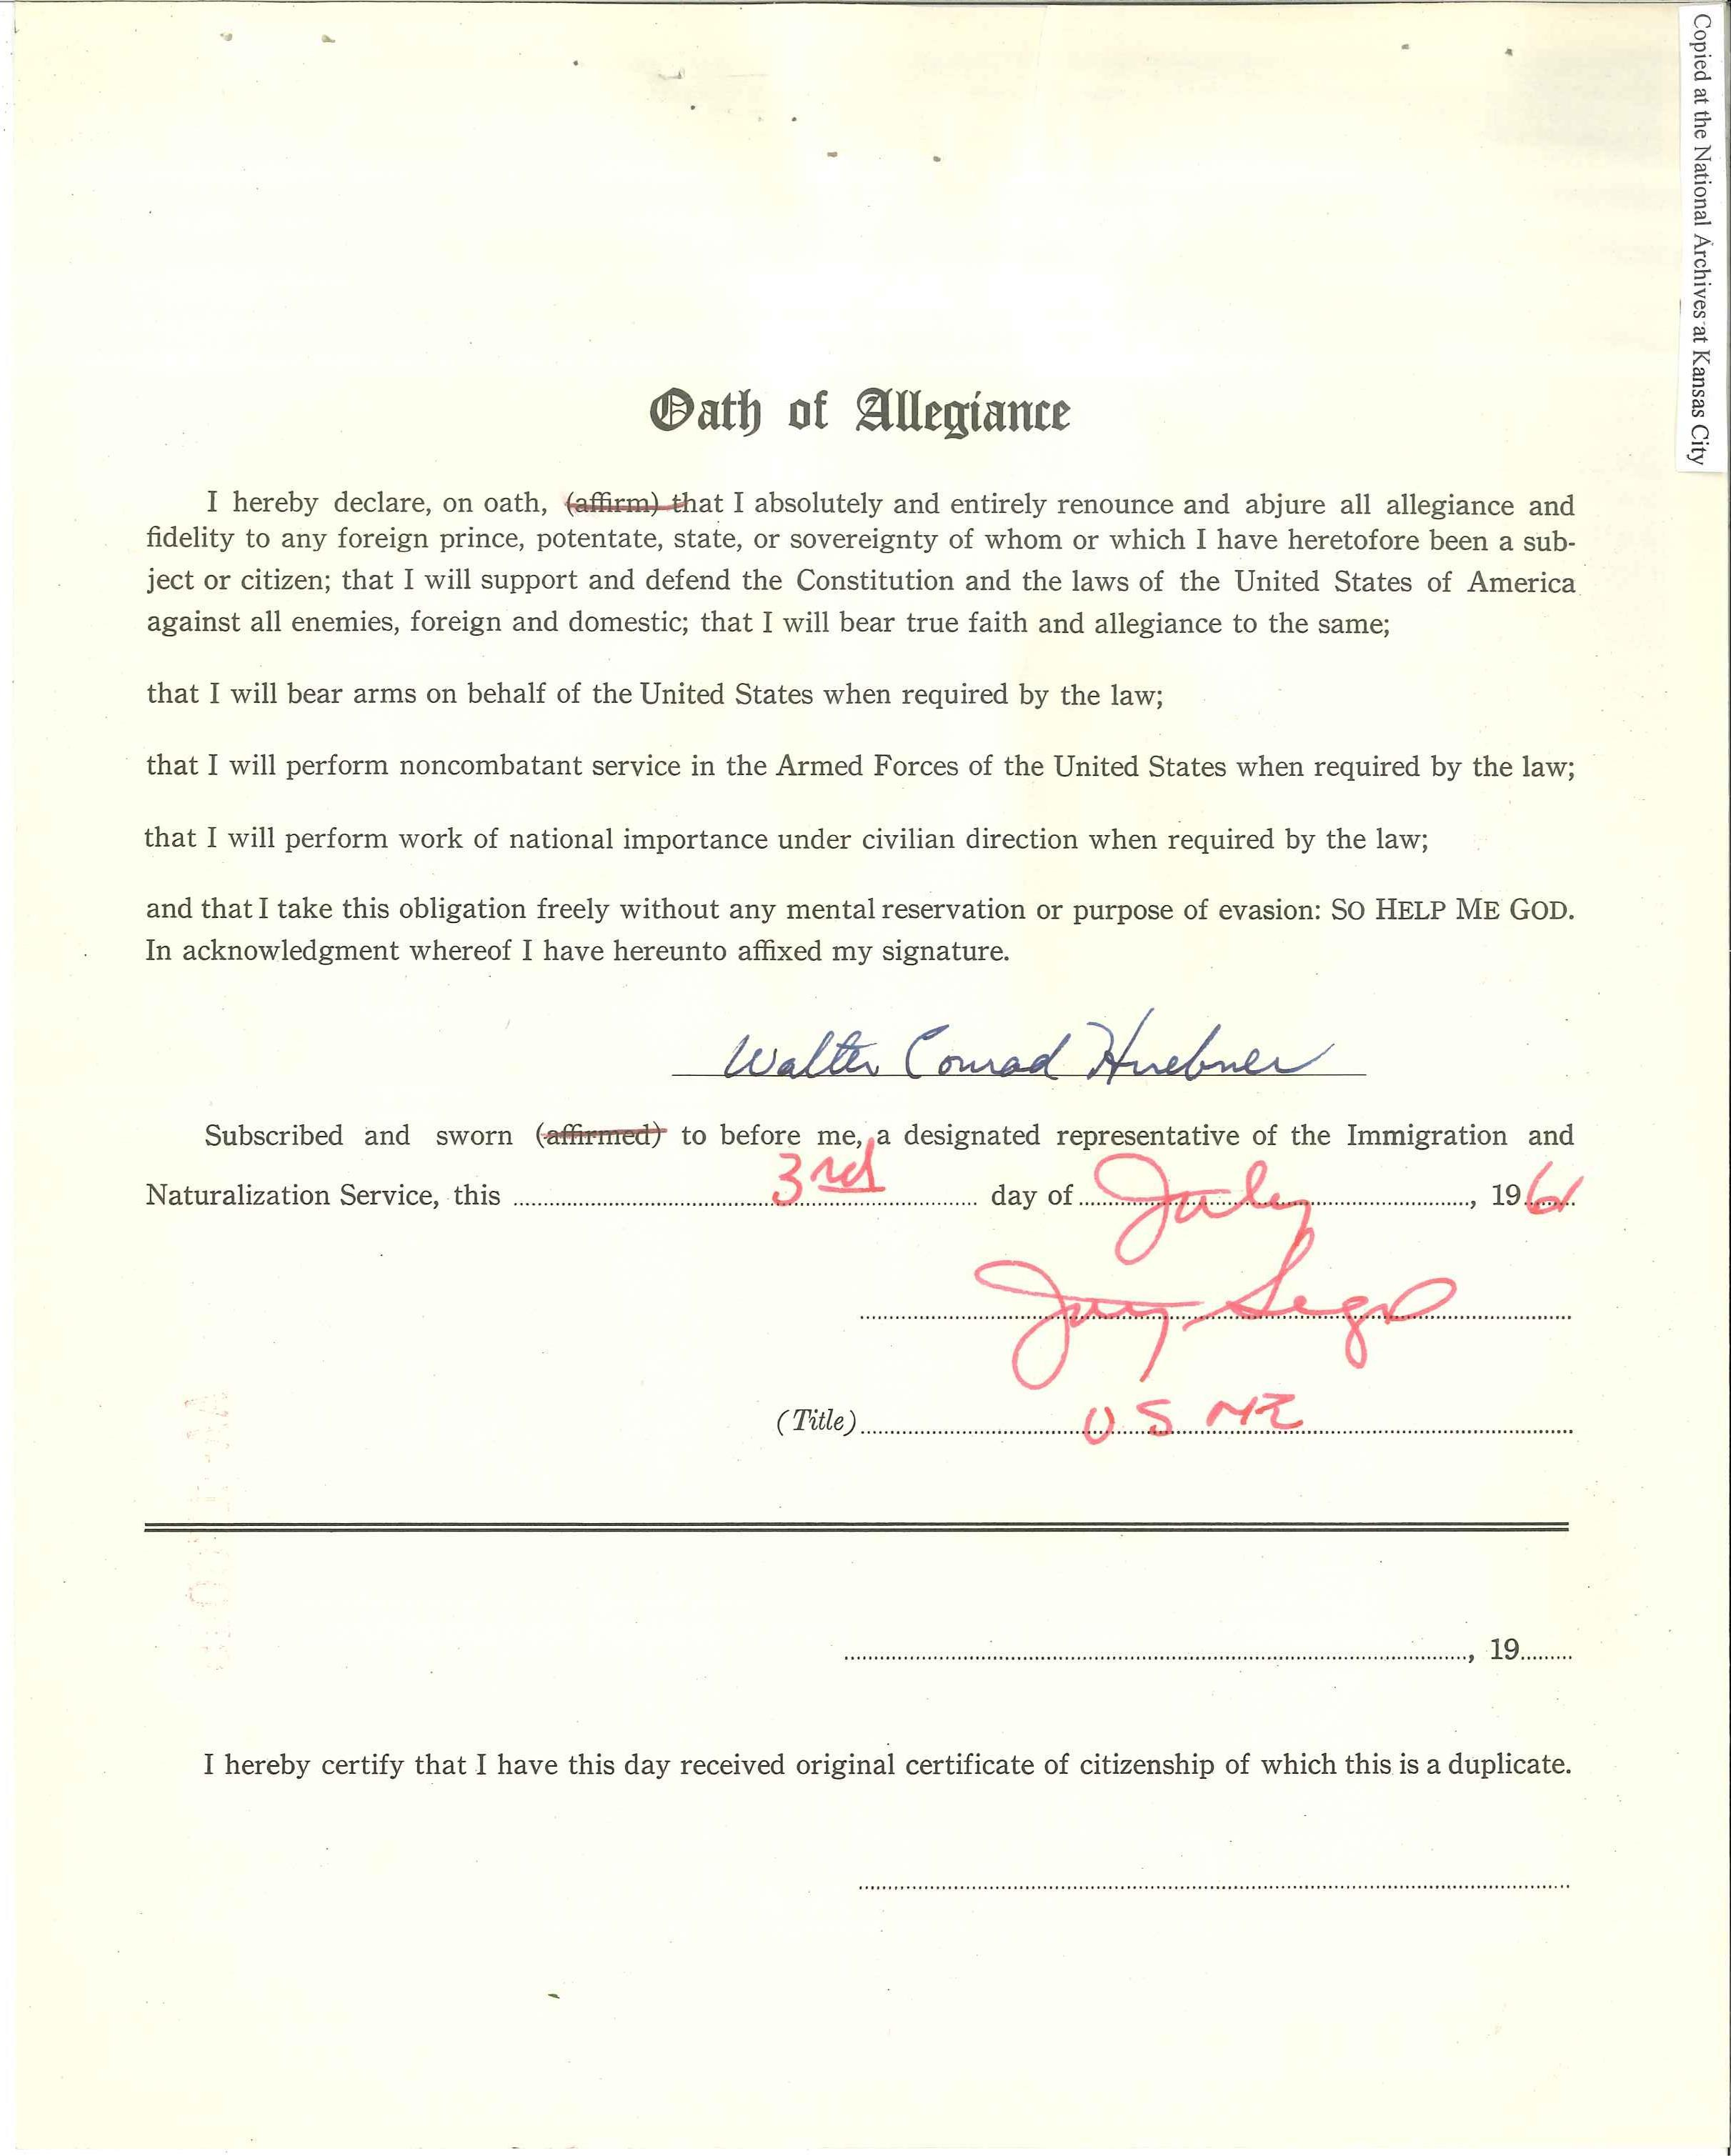 Copied at the National Archives at Kansas City
Oath of Allegiance
I hereby declare, on oath, (affirm) that I absolutely and entirely renounce and abjure all allegiance and
fidelity to any foreign prince, potentate, state, or sovereignty of whom or which I have heretofore been a sub-
ject or citizen; that I will support and defend the Constitution and the laws of the United States of America
against all enemies, foreign and domestic; that I will bear true faith and allegiance to the same;
that I will bear arms on behalf of the United States when required by the law;
that I will perform noncombatant service in the Armed Forces of the United States when required by the law;
that I will perform work of national importance under civilian direction when required by the law;
and that I take this obligation freely without any mental reservation or purpose of evasion: SO HELP ME GOD.
In acknowledgment whereof I have hereunto affixed my signature.
Walter Conrad Huebner
Subscribed and sworn (affirmed) to before me, a designated representative of the Immigration and
Naturalization Service, this 3rd day of July, 1961
(Title) U S
, 19
I hereby certify that I have this day received original certificate of citizenship of which this is a duplicate.